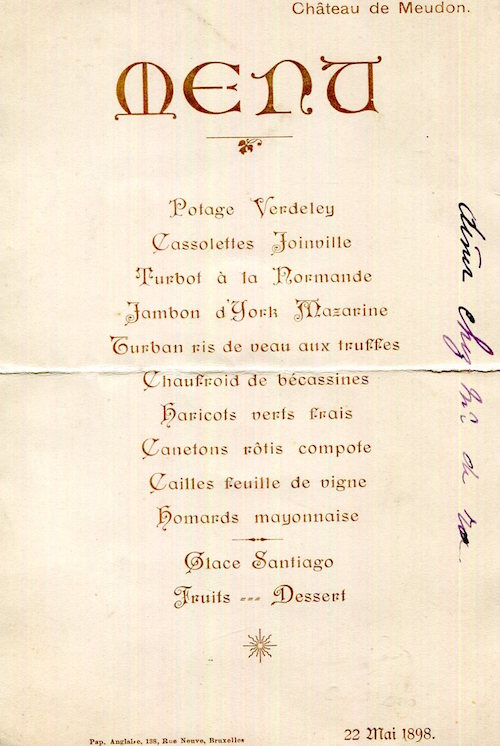 Château de Meudon.
MENU
Potage Verdeley
Cassolettes Joinville
Turbot à la Normande
Jambon d'York Mazarine
Turban ris de veau aux truffes
Chaufroid de bécassines
Haricots verts frais
Canetons rôtis compote
Cailles feuille de vigne
Homards mayonnaise
Glace Santiago
Fruits --- Dessert
Pap. Anglaise, 138, Rue Neuve, Bruxelles
22 Mai 1898.
chez